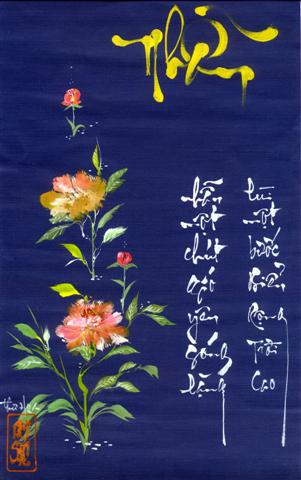 Nhẫn
nhẫn một chút gió yên sóng lặng
lùi một bước Biển Rộng Trời Cao